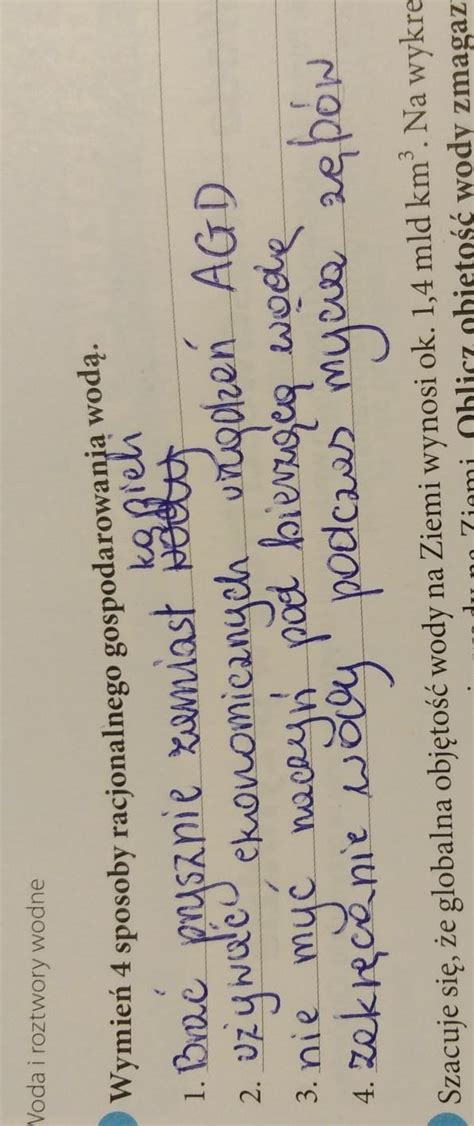 Woda i roztwory wodne
Wymień 4 sposoby racjonalnego gospodarowania wodą.
kąpieli
1. Brać prysznic zamiast
2. używać ekonomicznych urządzeń AGD
3. nie myć naczyń pod bierzącą wodę
4. zakręcanie wody podczas mycia zębów
Szacuje się, że globalna objętość wody na Ziemi wynosi ok. 1,4 mld km³. Na wykre
Ziemi. Oblicz objętość wody zmagaz